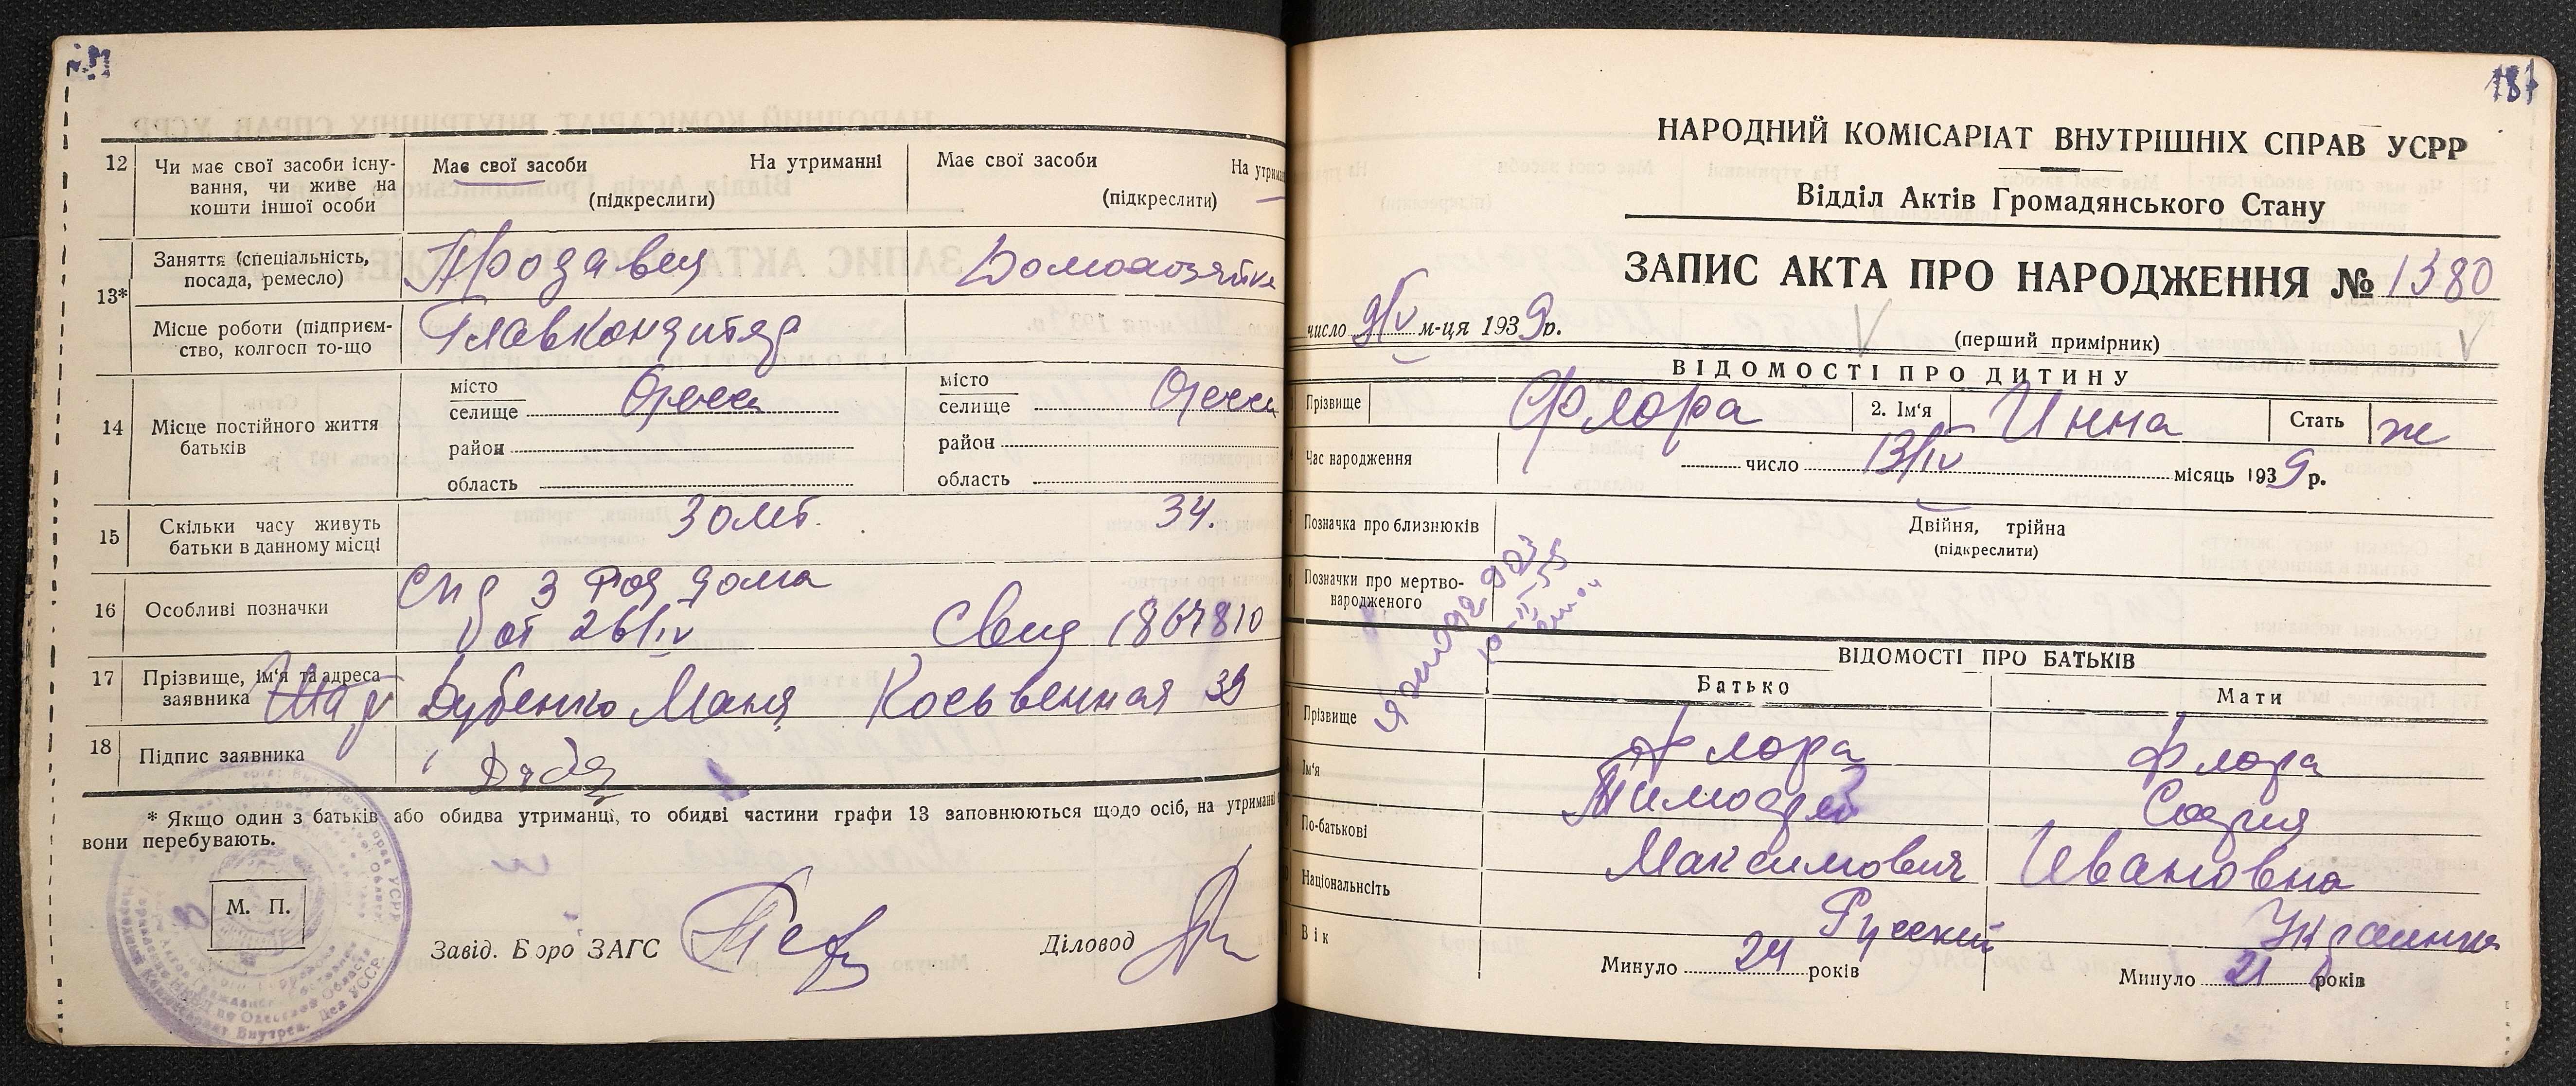 12 Чи має свої засоби існу-
вання, чи живе на
кошти іншої особи
Має свої засоби На утриманні
(підкреслити)
Має свої засоби На утрим
(підкреслити)
13*
Заняття (спеціальність,
посада, ремесло)
Продавец Домохозяйка
Місце роботи (підприєм-
ство, колгосп то-що
Главкондитер
14 Місце постійного життя
батьків
місто
селище Одесса
район
область
місто
селище Одесса
район
область
15 Скільки часу живуть
батьки в данному місці
3 34.
16 Особливі позначки
3 Род дома
от 26/IV Свид 1867810
17 Прізвище, ім'я та адреса
заявника
Дубенко Маня Косвенная 39
18 Підпис заявника
* Якщо один з батьків або обидва утриманці, то обидві частини графи 13 заповнюються щодо осіб, на утриманні
вони перебувають.
М. П.
Завід. Бюро ЗАГС
Діловод
187
НАРОДНИЙ КОМІСАРІАТ ВНУТРІШНІХ СПРАВ УСРР
Відділ Актів Громадянського Стану
ЗАПИС АКТА ПРО НАРОДЖЕННЯ № 1380
число 9/V м-ця 1939р.
(перший примірник)
ВІДОМОСТІ ПРО ДИТИНУ
Прізвище Флора 2. Ім'я Инна Стать ж
Час народження число 13/IV місяць 1939 р.
Позначка про близнюків
Двійня, трійна
(підкреслити)
Позначки про мертво-
народженого
ВІДОМОСТІ ПРО БАТЬКІВ
Батько Мати
Прізвище Флора Флора
Ім'я Тимофей София
По-батькові Максимович Ивановна
Національність Русский Украинка
Вік Минуло 24 років Минуло 21 років